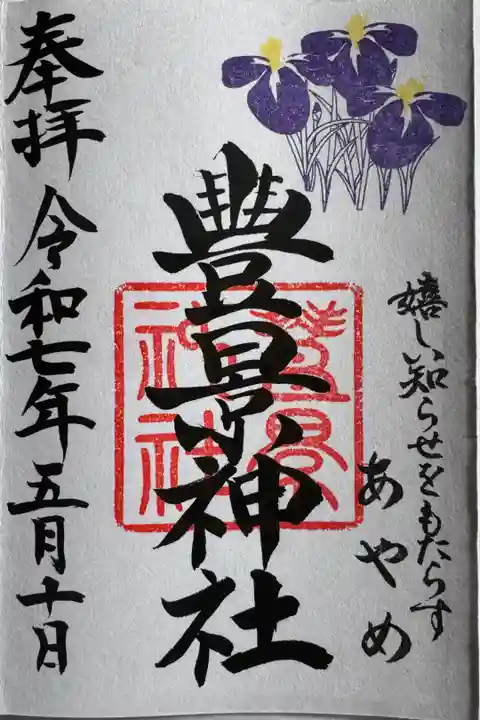 嬉しい知らせをもたらす
あやめ
豊景神社
豊景
神社
奉拝 令和七年五月十日